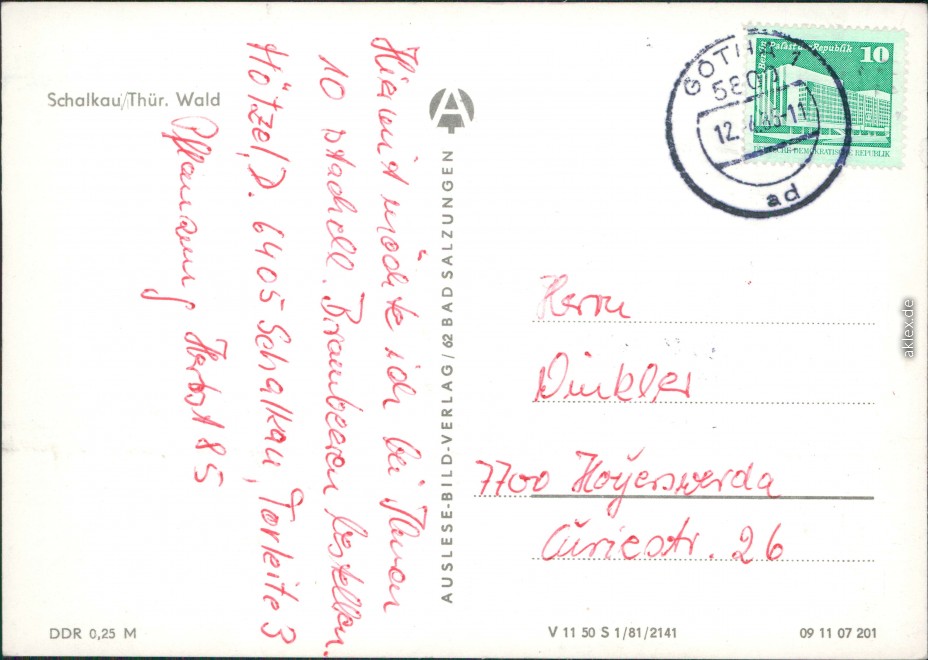 Schalkau/Thür. Wald
Hiermit möchte ich bei Ihnen
10 stachell. Brombeeren bestellen.
Hötzel, D. 6405 Schalkau, Torleite 3
Pflanzung Herbst 85
AUSLESE-BILD-VERLAG / 62 BAD SALZUNGEN
DDR 0,25 M
Berlin Palast der Republik 10
DEUTSCHE DEMOKRATISCHE REPUBLIK
GOTHA 1
5800
12. 85-11
ad
Herrn
Winkler
7700 Hoyerswerda
Curiestr. 26
V 11 50 S 1/81/2141
09 11 07 201
aklex.de